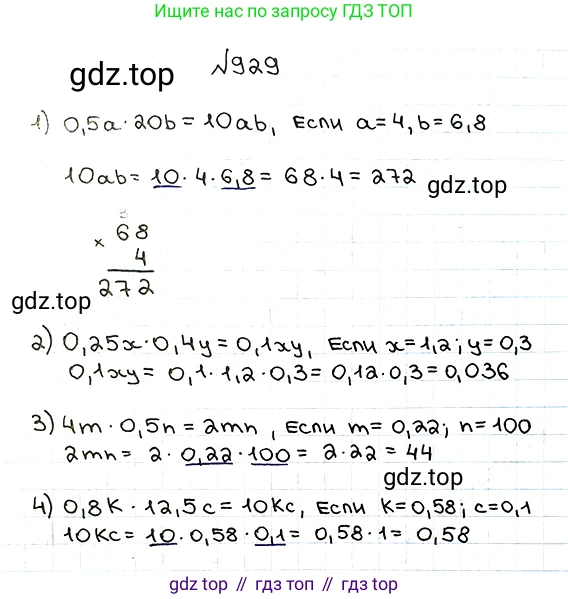 Ищите нас по запросу ГДЗ ТОП
№929
gdz.top
1) 0,5a·20b=10ab, Если a=4, b=6,8
10ab=10·4·6,8=68·4=272
gdz.top
3
× 68
4
272
gdz.top
2) 0,25x·0,4y=0,1xy, Если x=1,2; y=0,3
0,1xy=0,1·1,2·0,3=0,12·0,3=0,036
3) 4m·0,5n=2mn, Если m=0,22; n=100
2mn=2·0,22·100=2·22=44
gdz.top
4) 0,8k·12,5c=10kc, Если k=0,58; c=0,1
10kc=10·0,58·0,1=0,58·1=0,58
gdz top // гдз топ // гдз.top